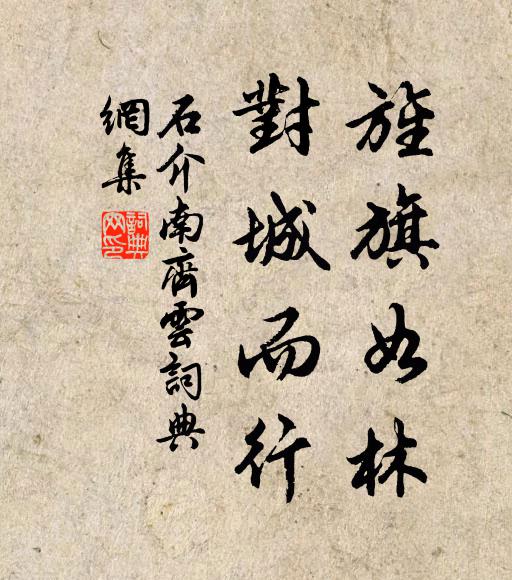 旌旗如林
對城而行
石介南齊雲詞典
網集
詞典網印